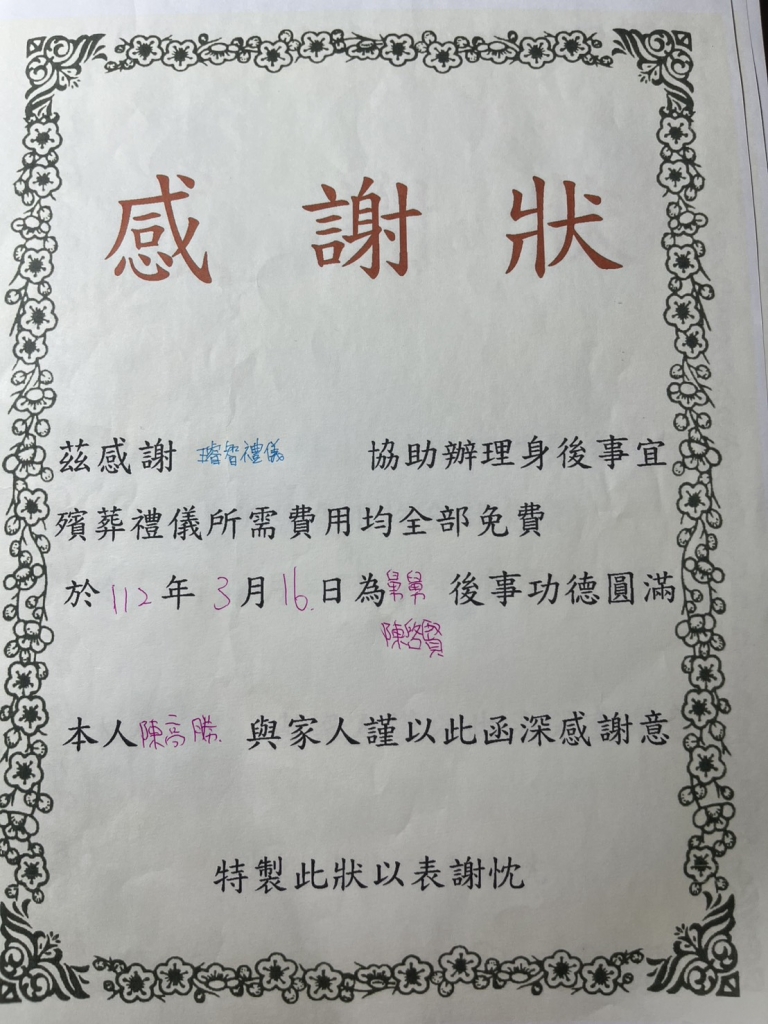 感謝狀
茲感謝 璿智禮儀 協助辦理身後事宜
殯葬禮儀所需費用均全部免費
於112年3月16日為舅舅 後事功德圓滿
陳啓賢
本人陳高勝 與家人謹以此函深感謝意
特製此狀以表謝忱